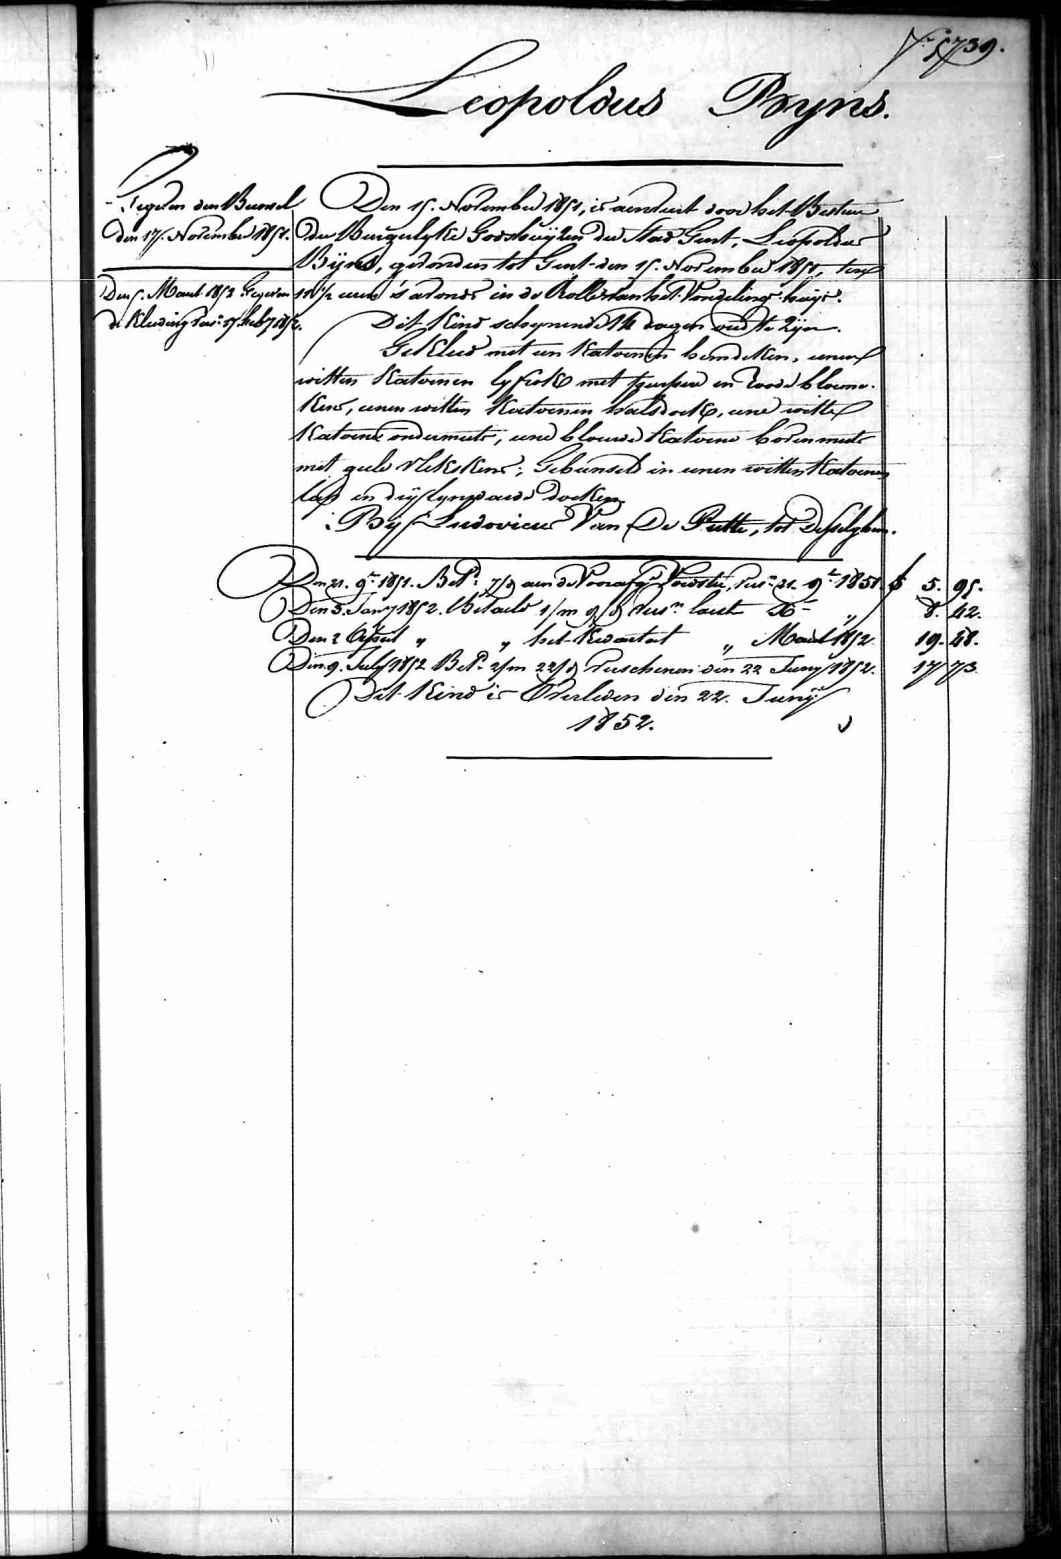 N.º 5739.
Leopoldus Bryns.
Gegeven den Bunsel
den 17. November 1851.
Den 5. Maert 1852 Gegeven
de Kleeding
Den 15. November 1851, is aenveert door het Bestuur
der Burgerlyke Godshuijzen der Stad Gent, Leopoldus
Bijns, gevonden tot Gent den 15. November 1851, ten
uren 's avonds in de Rolle van het Vondelinghuijs.
Dit Kind schynende 14 dagen oud te zijn.
Gekleed met een Katoenen hemdeken, eenen
witten Katoenen lyfrok met purpere en roode bloeme-
kens, eenen witten Katoenen halsdoek, eene witte
Katoene ondermuts, eene blauwe Katoene bovenmuts
met gele vlekskens; Gebunseld in eenen witten Katoenen
lap en dry lynwaede doeken
By Ludovicus Van De Putte, tot Desselghem.
Den 21. 9.r 1851. Bet.d 7/d aen de Voorafg. Voedster, 21. 9.r 1851 f 5. 95.
Den 3. Jany 1852. Betaeld 1/m 9/d laest X.r „ 8. 42.
Den 2 April „ „ het Kwartael „ Maert 1852 19. 48.
Den 9. July 1852 Bet.d 2/m 22/d verschenen den 22 Juny 1852. 17 73
Dit Kind is Overleden den 22. Juny
1852.